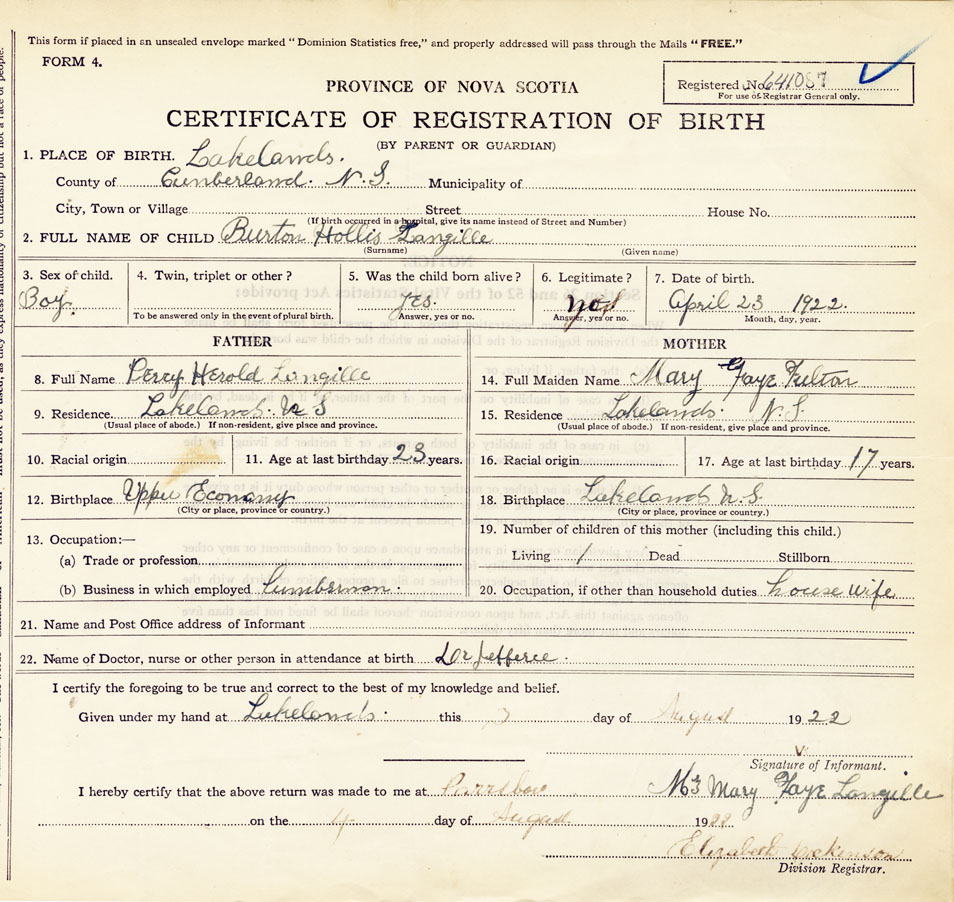 This form if placed in an unsealed envelope marked "Dominion Statistics free," and properly addressed will pass through the Mails "FREE."
FORM 4.
Registered No. 641087
For use of Registrar General only.
PROVINCE OF NOVA SCOTIA
CERTIFICATE OF REGISTRATION OF BIRTH
(BY PARENT OR GUARDIAN)
1. PLACE OF BIRTH. Lakelands.
County of Cumberland. N.S. Municipality of
City, Town or Village Street House No.
(If birth occurred in a hospital, give its name instead of Street and Number)
2. FULL NAME OF CHILD Burton Hollis Langille
(Surname) (Given name)
3. Sex of child. 4. Twin, triplet or other? 5. Was the child born alive? 6. Legitimate? 7. Date of birth.
Boy. yes. April 23 1922.
To be answered only in the event of plural birth. Answer, yes or no. Answer, yes or no. Month, day, year.
FATHER MOTHER
8. Full Name Percy Herold Langille 14. Full Maiden Name Mary Faye Fulton
9. Residence. Lakelands. N S 15. Residence Lakelands. N.S.
(Usual place of abode.) If non-resident, give place and province. (Usual place of abode.) If non-resident, give place and province.
10. Racial origin 11. Age at last birthday 23 years. 16. Racial origin 17. Age at last birthday 17 years.
12. Birthplace Upper Economy 18. Birthplace Lakelands N.S.
(City or place, province or country.) (City or place, province or country.)
13. Occupation:— 19. Number of children of this mother (including this child.)
(a) Trade or profession Living 1 Dead Stillborn
(b) Business in which employed Lumberman. 20. Occupation, if other than household duties house wife
21. Name and Post Office address of Informant
22. Name of Doctor, nurse or other person in attendance at birth Dr
I certify the foregoing to be true and correct to the best of my knowledge and belief.
Given under my hand at Lakelands. this 3 day of August 1922
Signature of Informant.
I hereby certify that the above return was made to me at Parrsboro Mrs Mary Faye Langille
on the 4 day of August 1922
Elizabeth
Division Registrar.